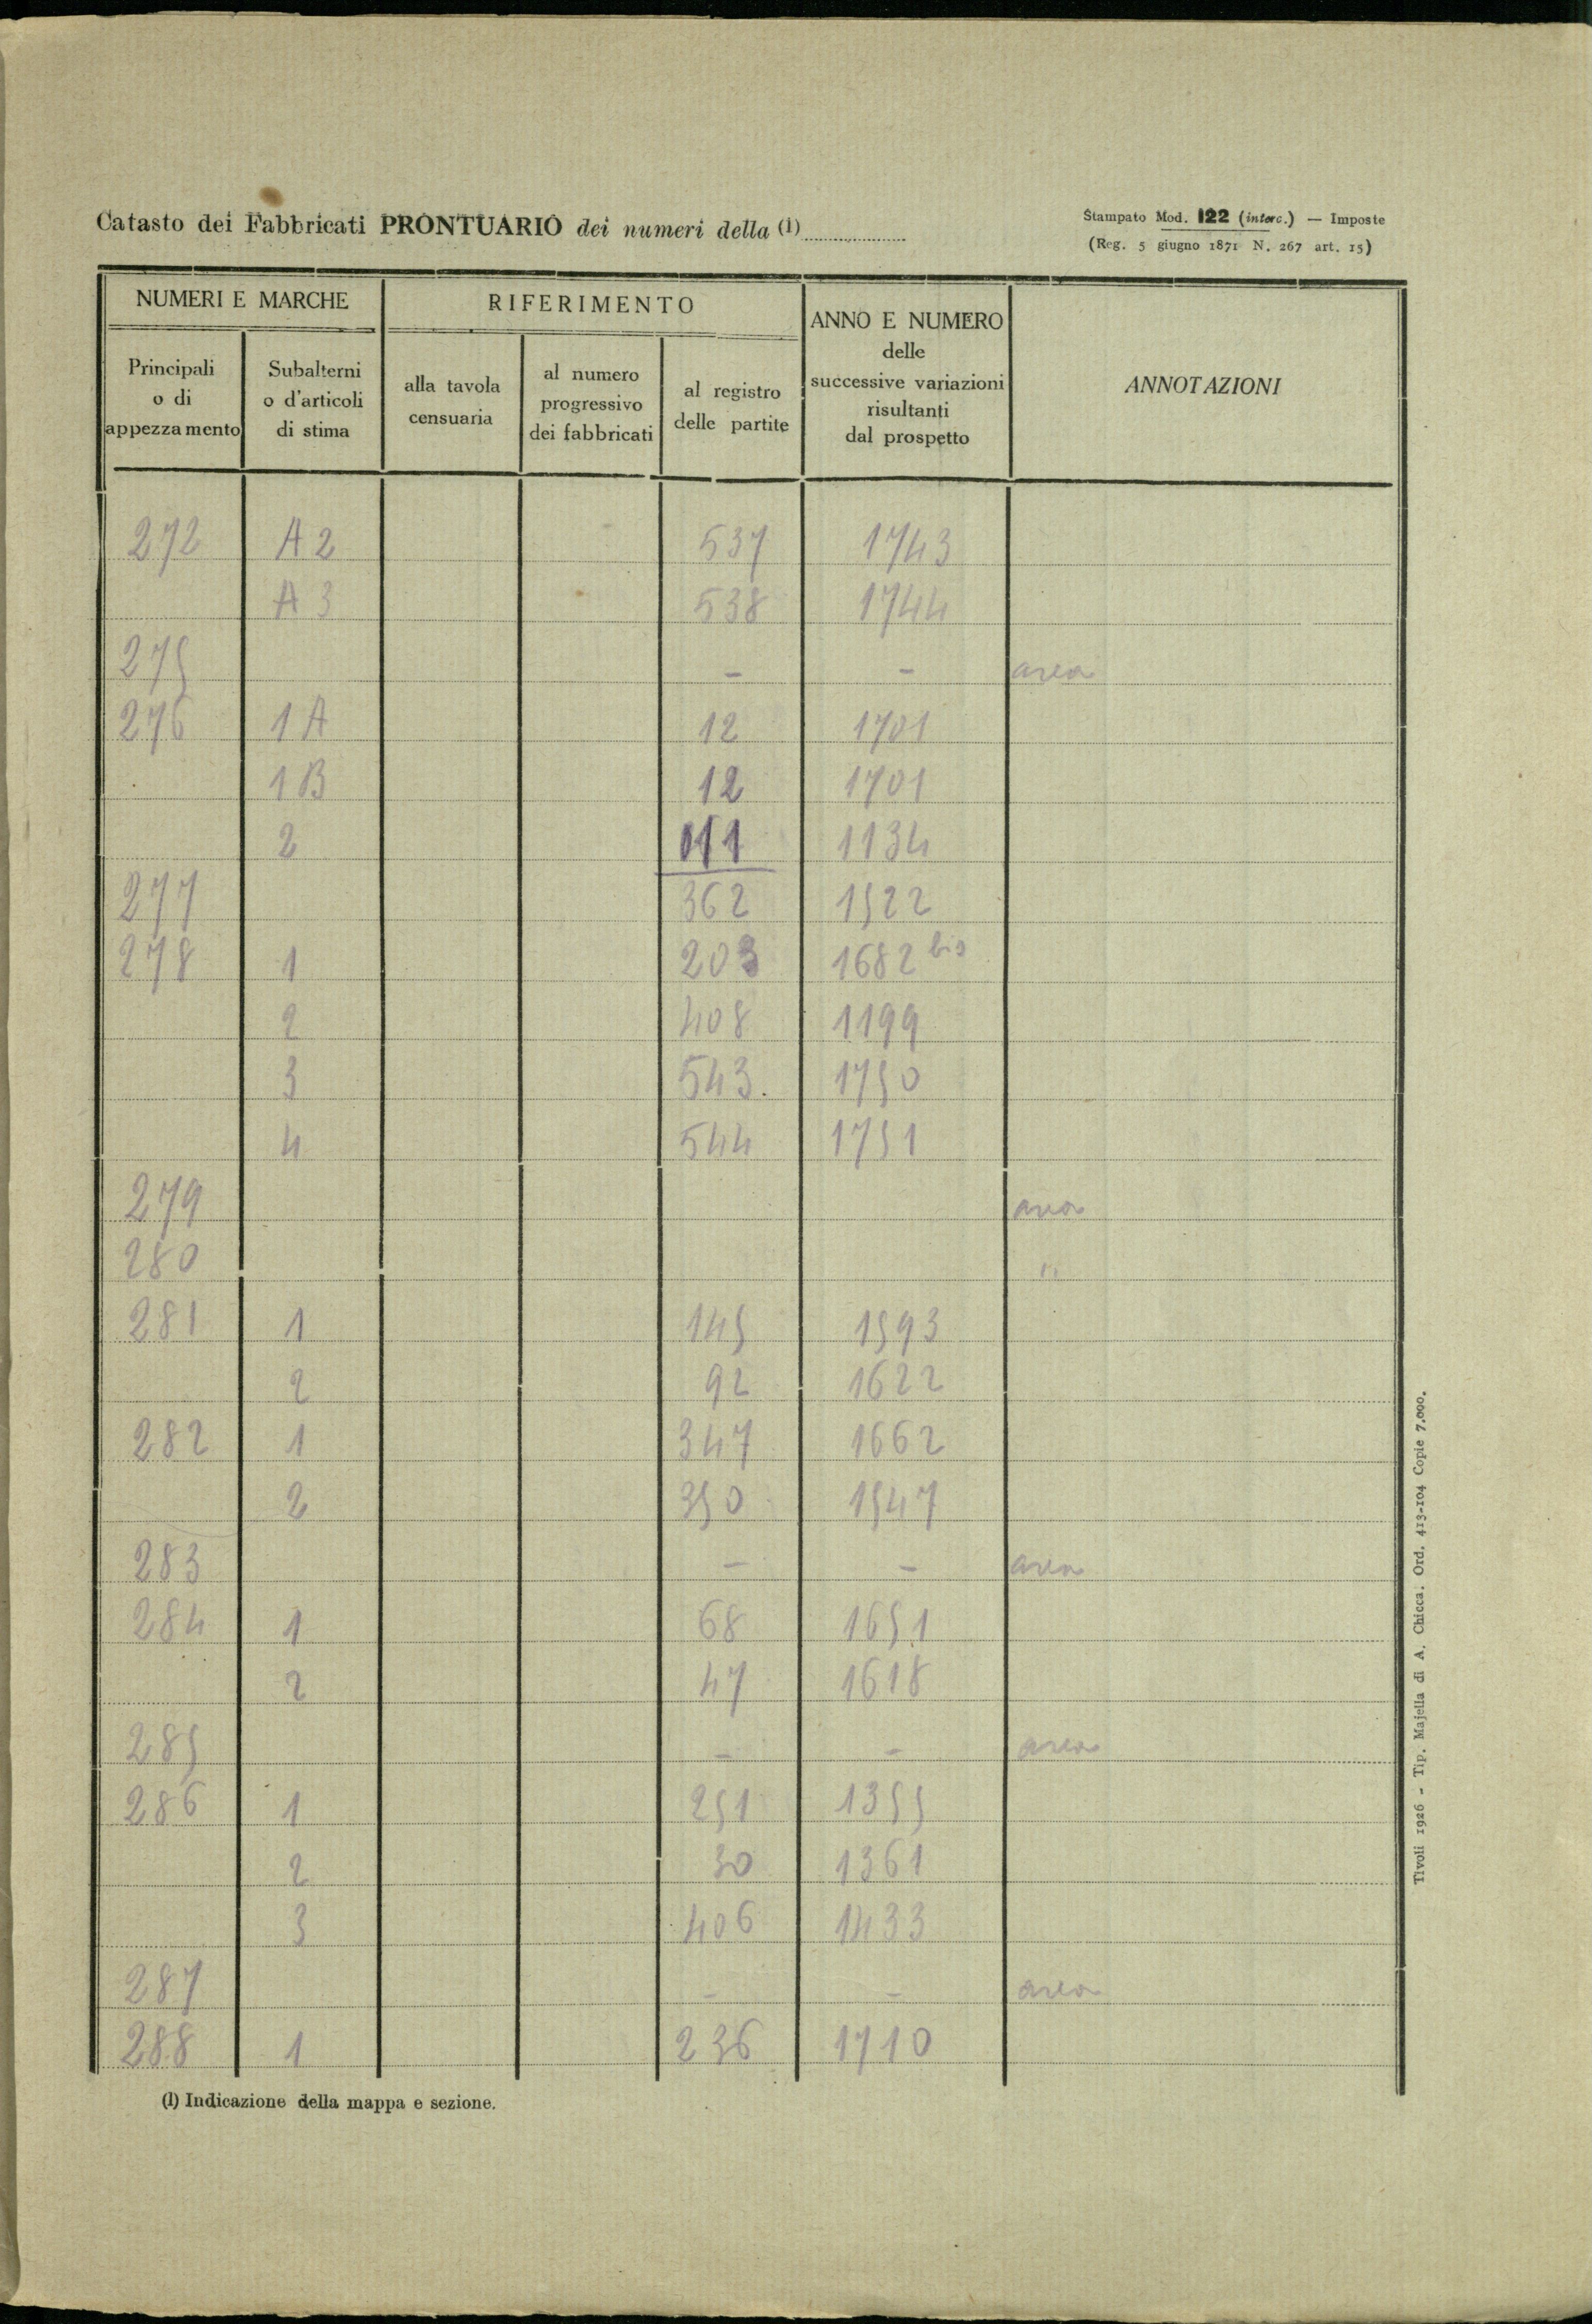 Catasto dei Fabbricati PRONTUARIO dei numeri della (1)
Stampato Mod. 122 (interc.) — Imposte
(Reg. 5 giugno 1871 N. 267 art. 15)
NUMERI E MARCHE
RIFERIMENTO
ANNO E NUMERO
delle
successive variazioni
risultanti
dal prospetto
ANNOTAZIONI
Principali
o di
appezzamento
Subalterni
o d'articoli
di stima
alla tavola
censuaria
al numero
progressivo
dei fabbricati
al registro
delle partite
272 A2 537 1743
A3 538 1744
275 - - area
276 1A 12 1701
1B 12 1701
2 1134
277 362 1522
278 1 203 1682 bis
2 408 1199
3 543. 1750
4 544 1751
279 area
280 "
281 1 145 1593
2 92 1622
282 1 347 1662
2 350 1547
283 - - area
284 1 68 1651
2 47 1618
285 - - area
286 1 251 1355
2 30 1361
3 406 1433
287 - - area
288 1 236 1710
(1) Indicazione della mappa e sezione.
Tivoli 1926 - Tip. Majella di A. Chicca. Ord. 413-104 Copie 7.000.